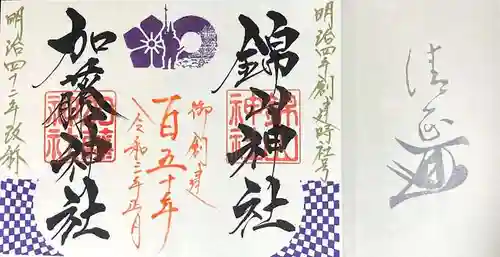 明治四年創建時社号
錦山神社
錦山神社
御創建
百五十年
令和三年正月
加藤神社
明治四十二年改称
清正